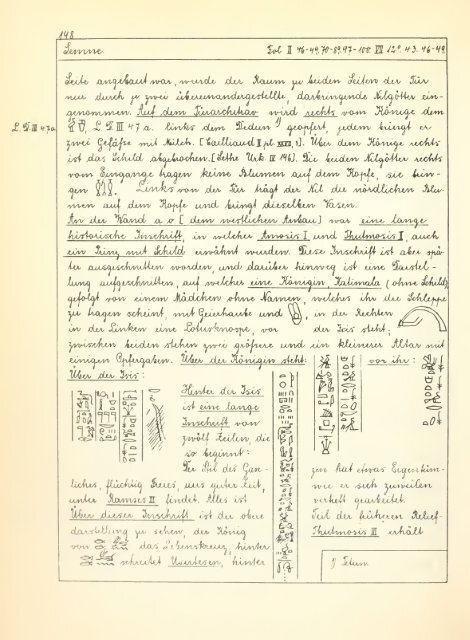 148
Semne. Fol II 46-49. 79-89. 97-108 VII 12°. 43. 46-49.
Seite angebaut war, wurde der Raum zu beiden Seiten der Tür
nur durch je zwei übereinandergestellte, darbringende Nilgötter ein-
genommen. Auf dem Türarchitrav wird rechts vom Könige dem
L.D. III 47a
, L.D. III 47a. links dem Dedun geopfert, jedem bringt er
zwei Gefäße mit Milch. [Cailliaud II pl. 1]. Über dem Könige rechts
ist das Schild abgebrochen. [Sethe Urk. IV 196]. Die beiden Nilgötter rechts
vom Eingange tragen keine Blumen auf dem Kopfe, sie brin-
gen . Links von der Tür trägt der Nil die nördlichen Blu-
men auf dem Kopfe und bringt dieselben Vasen.
An der Wand a v [dem westlichen Anbau] war eine lange
historische Inschrift, in welcher Amosis I und Thutmosis I, auch
ein Prinz mit Schild erwähnt wurden. Diese Inschrift ist aber spä-
ter ausgeschnitten worden, und darüber hinweg ist eine Darstel-
lung aufgeschnitten, auf welcher eine Königin Katimala (ohne Schild)
gefolgt von einem Mädchen ohne Namen, welches ihr die Schleppe
zu tragen scheint, mit Geierhaube und , in der Rechten
in der Linken eine Lotusknospe, vor der Isis steht;
zwischen beiden stehen zwei größere und ein kleinerer Altar mit
einigen Opfergaben. Über der Königin steht: vor ihr:
Über der Isis:
Hinter der Isis
ist eine lange
Inschrift von
zwölf Zeilen, die
so beginnt:
Der Stil des Gan-
zen hat etwas Eigentüm-
liches, flüchtig Freies, aus guter Zeit,
wie er sich zuweilen
unter Ramses II findet. Alles ist
vertieft gearbeitet.
Über dieser Inschrift ist der obere
Teil der früheren Relief-
darstellung zu sehen, der König
Thutmosis III erhält
von das Lebenskreuz, hinter
schreitet Usertesen, hinter